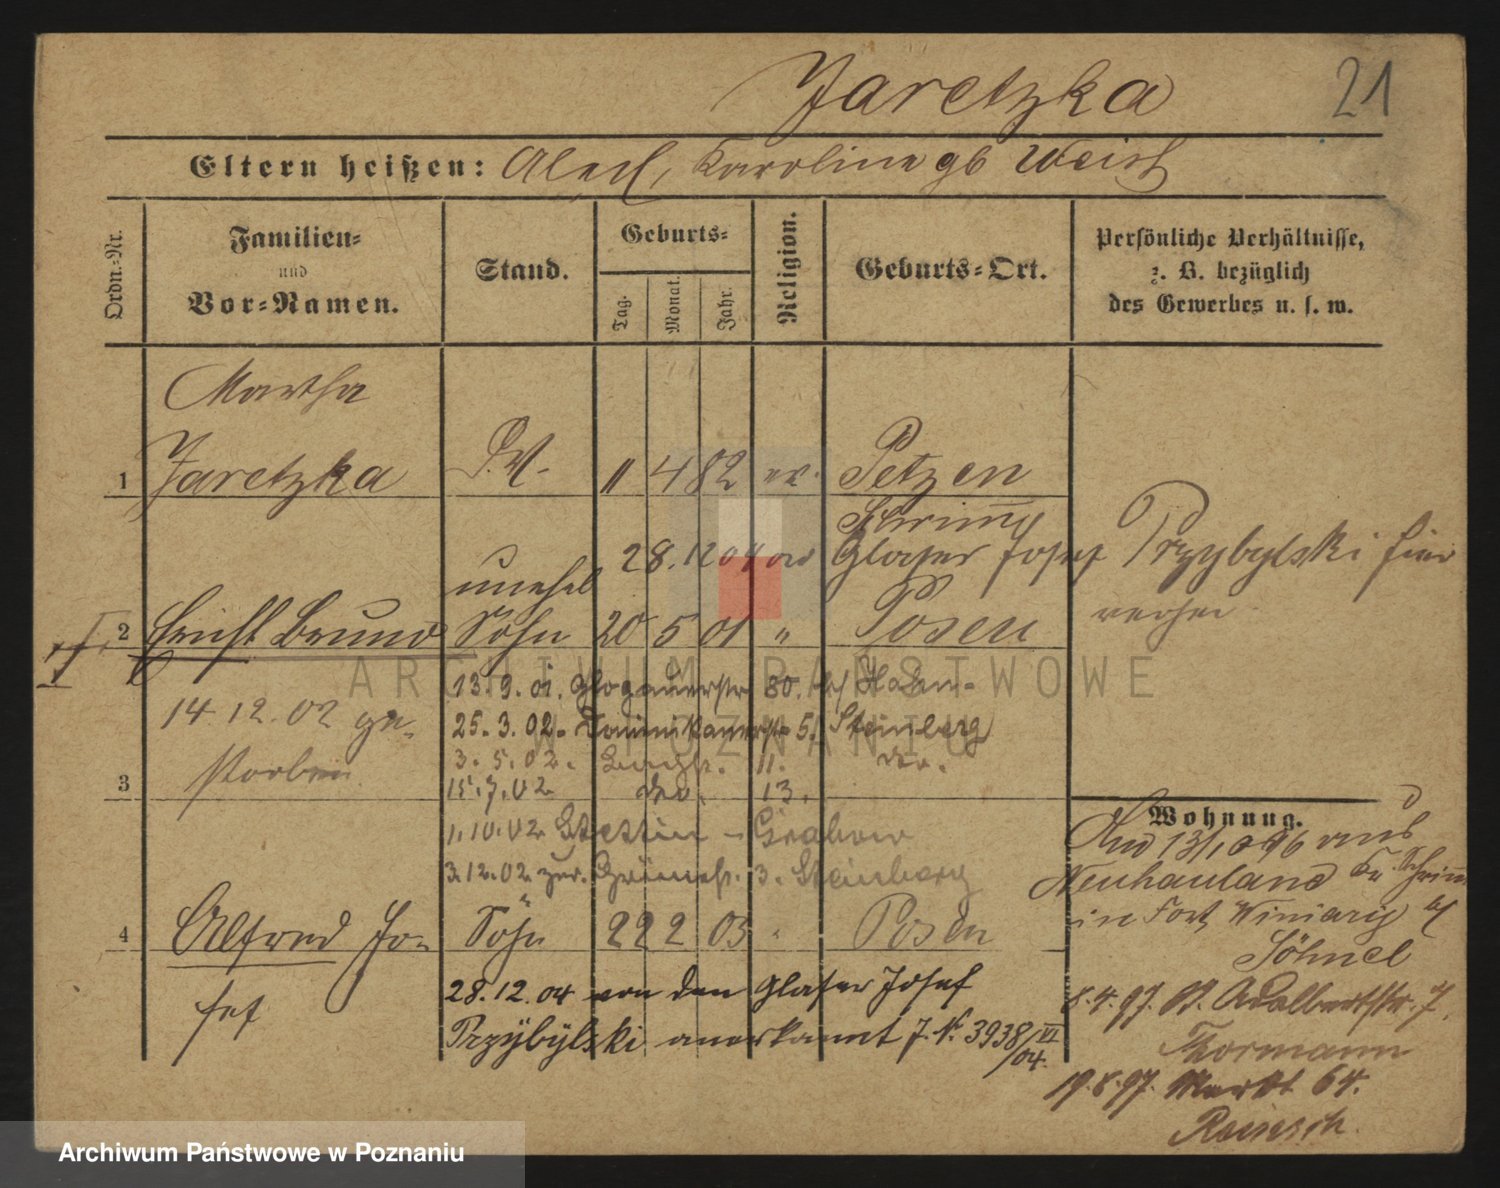 Jaretzka
21
Eltern heißen: Karoline gb Weist
Ordn.-Nr.
Familien-
und
Vor-Namen.
Stand.
Geburts-
Tag.
Monat.
Jahr.
Religion.
Geburts-Ort.
Persönliche Verhältnisse,
z. B. bezüglich
des Gewerbes u. s. w.
Martha
1 Jaretzka 11 4 82 ev. Petzen
Schrimm
28.12 04 Glaser Josef Przybylski
unehel
2 Ernst Bruno Sohn 20 5 01 " Posen
13.9.01. Glogauerstr 80.
14.12.02 ge-
25.3.02. 5. Steinberg
storben
3.5.02. 11. do.
3
15.7.02 do. 13.
1.10.02 Stettin - Grabow
3.12.02 zur. 3. Steinberg
4 Alfred Jo- Sohn 22 2 03 " Posen
sef
28.12.04 von dem Glaser Josef
Przybylski anerkannt J. N. 3938/VI 04.
Wohnung.
13/10 96 aus
Neuhauland Kr. Schrimm
in Fort Winiary
Söhnel
8.4.97. Adalbertstr. 7.
Thormann
19.8.97. Markt 64.
ARCHIWUM PAŃSTWOWE
W POZNANIU
Archiwum Państwowe w Poznaniu